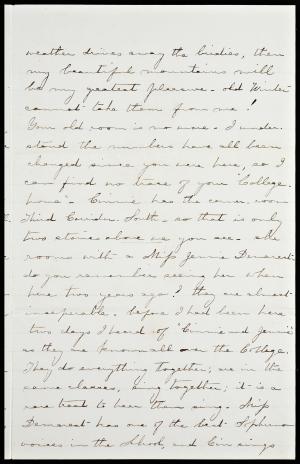 weather drives away the birdies, then
my beautiful mountains will
be my greatest pleasure - old Winter
cannot take them from me!
Your old room is no more - I under-
stand the numbers have all been
changed since you were here, so I
can find no trace of your "College
home". Cinnie has the corner room
Third Corridor South - so that is only
two stories above me you see. She
rooms with a Miss Jennie Demarest-
do you remember seeing her when
here two years ago? They are almost
inseparable. before I had been here
two days I heard of "Cinnie and Jennie"
as they are known all over the College.
They do everything together; are in the
same classes, sing together; it is a
rare treat to hear them sing. Miss
Demarest has one of the best Soprano
voices in the School, and Cin sings